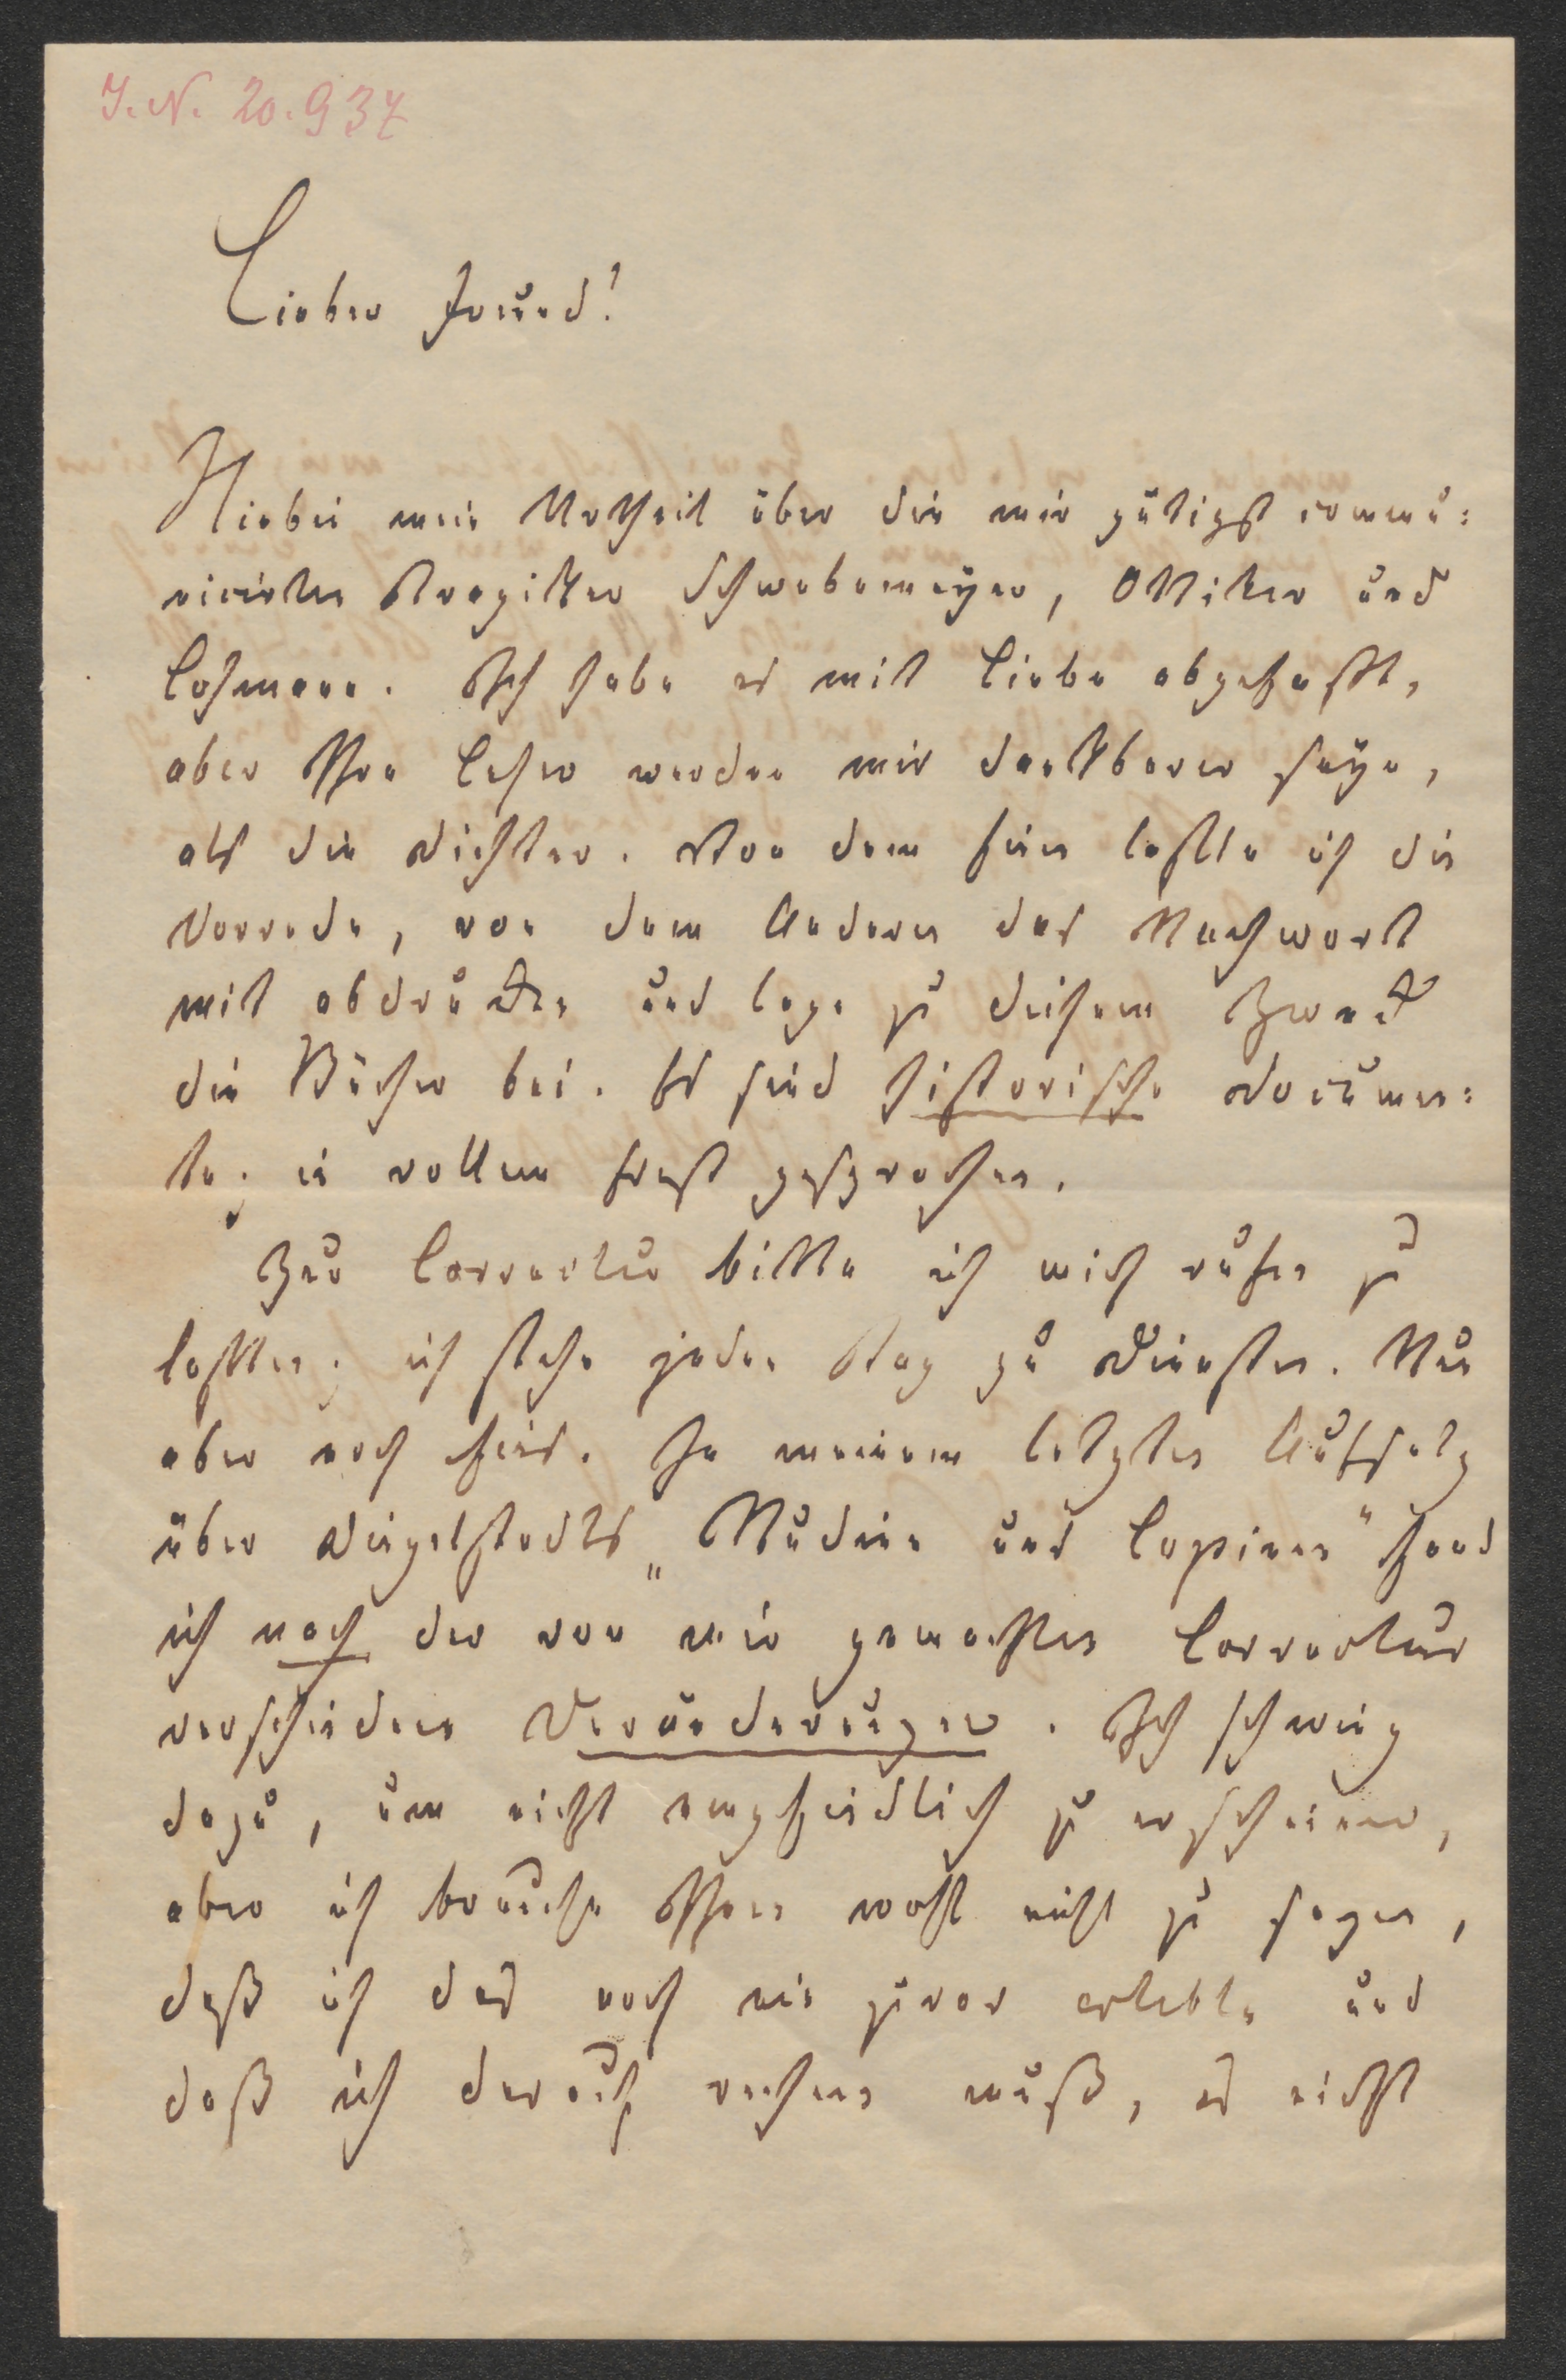 J. N. 20.937
Lieber Freund!
Hiebei mein Urtheil über die mir gütigst commu:
nicirten Tragiker Schwabemayer, Ottiker und
Lohmann. Ich habe es mit Liebe abgefaßt,
aber Ihre Leser werden mir dankbarer seyn,
als die Dichter. Von dem Einen laßen ich die
Vorrede, von dem Andern das Nachwort
mit abdrucken und lege zu diesem Zweck
die Bücher bei. Es sind historische Documen:
te; in vollem Ernst gesprochen.
Zur Correctur bitte ich mich rufen zu
laßen; ich stehe jeden Tag zu Diensten. Nun
aber noch Eins. In meinem letzten Aufsatz
über Dingelstedts „Studien und Copieen" fand
ich nach der von mir gemachten Correctur
verschiedene Veränderungen. Ich schwieg
dazu, um nicht empfindlich zu erscheinen,
aber ich brauche Ihnen wohl nicht zu sagen,
daß ich das noch nie zuvor erlebte und
daß ich darauf rechnen muß, es nicht